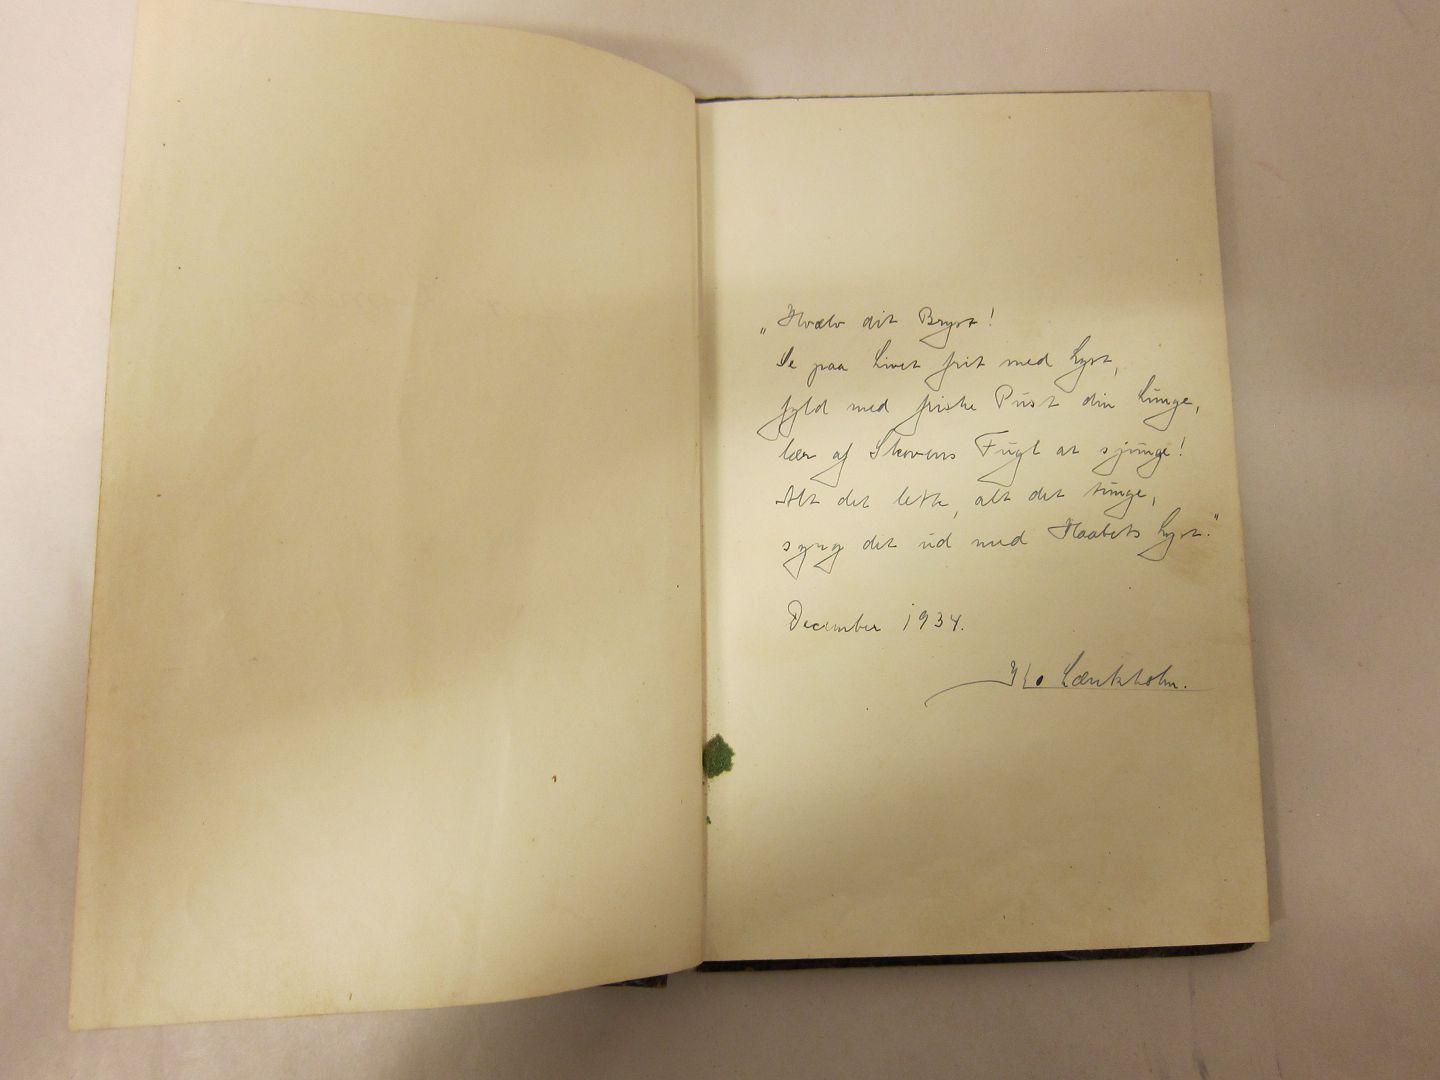 „Hvælv dit Bryst!
Se paa Livet frit med Lyst,
fyld med friske Pust din Lunge,
lær af Skovens Fugl at sjunge!
Alt det lette, alt det tunge,
syng det ud med Haabets Lyst."
December 1934.
Lænkholm.